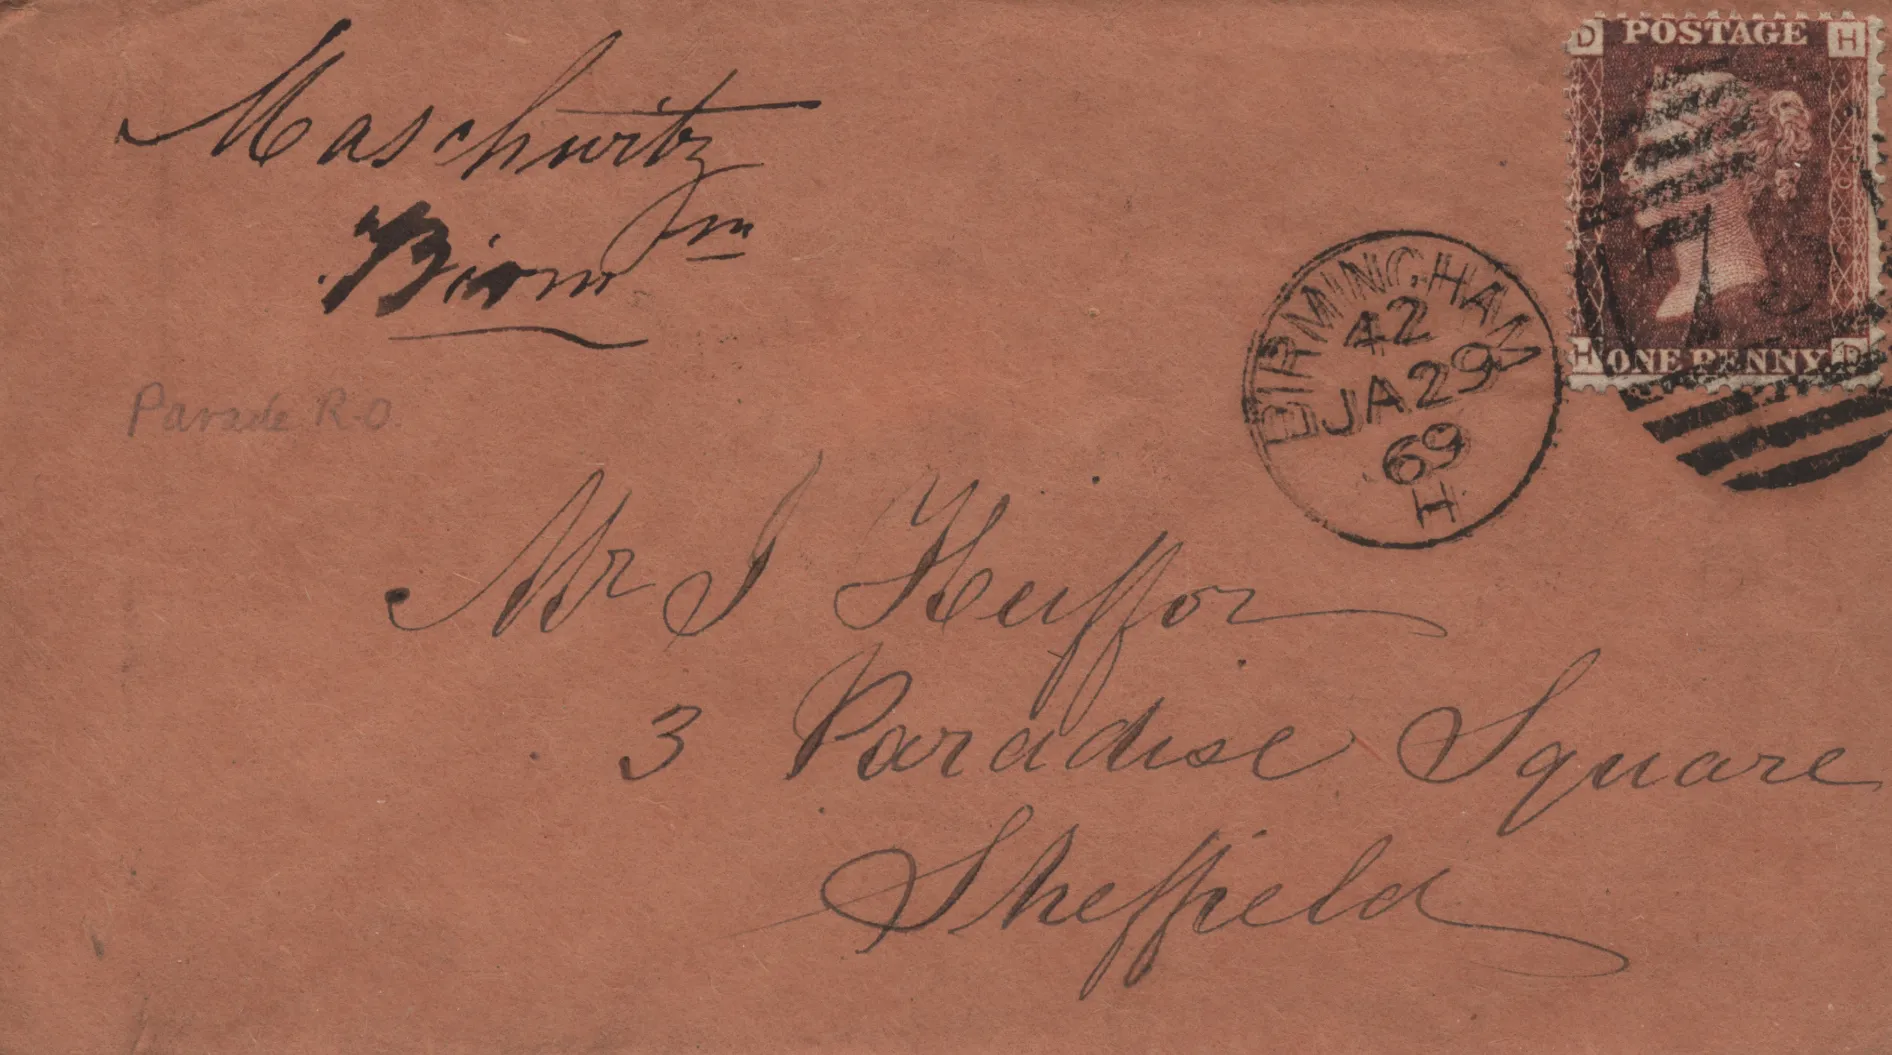 Maschwitz
Birm m
Parade R.O.
Mr J Heiffor
3 Paradise Square
Sheffield
BIRMINGHAM
42
JA 29
69
H
D POSTAGE H
H ONE PENNY. D